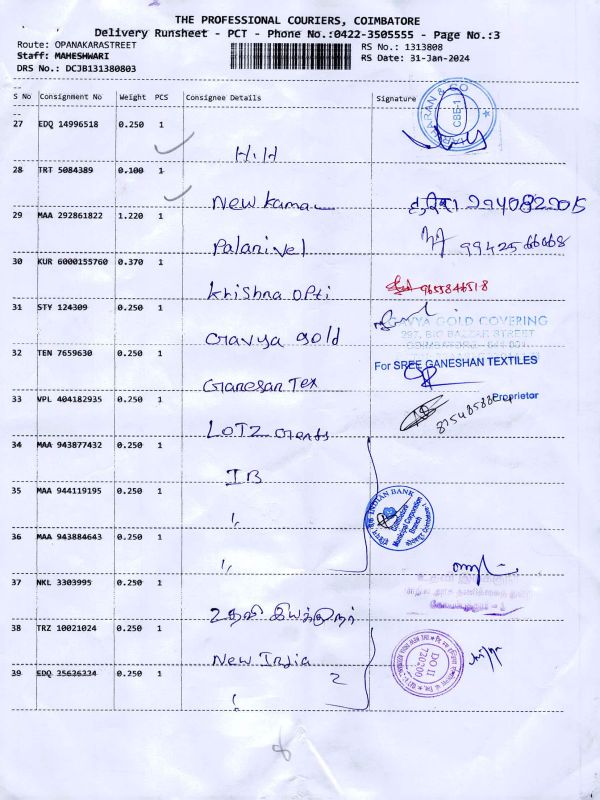 THE PROFESSIONAL COURIERS, COIMBATORE
Delivery Runsheet - PCT - Phone No.:0422-3505555 - Page No.:3
Route: OPANAKARASTREET
RS No.: 1313808
Staff: MAHESHWARI
RS Date: 31-Jan-2024
DRS No.: DCJB131380803
S No Consignment No Weight PCS Consignee Details Signature
27 EDQ 14996518 0.250 1
CBE-1
28 TRT 5084389 0.100 1
New Kamal
29 MAA 292861822 1.220 1
Palanivel
30 KUR 6000155760 0.370 1
Krishna opti
31 STY 124309 0.250 1
Gravya Gold
GOLD COVERING
32 TEN 7659630 0.250 1
For SREE GANESHAN TEXTILES
Ganesan Tex
Proprietor
33 VPL 404182935 0.250 1
LOTZ
34 MAA 943877432 0.250 1
IB
35 MAA 944119195 0.250 1
INDIAN BANK
Coimbatore
Municipal Corporation
Branch
"
36 MAA 943884643 0.250 1
"
37 NKL 3303995 0.250 1
உதவி இயக்குநர்
38 TRZ 10021024 0.250 1
New India
DO II
720200
39 EDQ 35636334 0.250 1
2
"